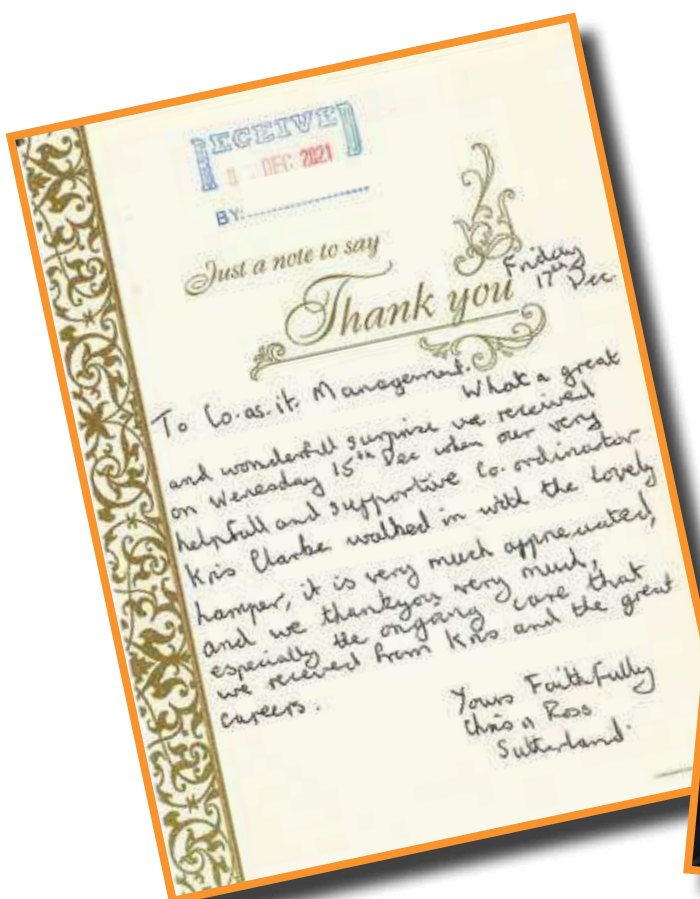 RECEIVE
DEC 2021
BY:
Just a note to say
Thank you
Friday
17th Dec
To Co.as.it. Management.
What a great
and wonderfull surprise we received
on Wenesday 15th Dec when our very
helpfull and supportive Co-ordinator
Kris Clarke walked in with the lovely
hamper, it is very much appreciated,
and we thankyou very much,
especially the ongoing care that
we received from Kris and the great
careers.
Yours Faithfully
Chris n Ross
Sutherland.